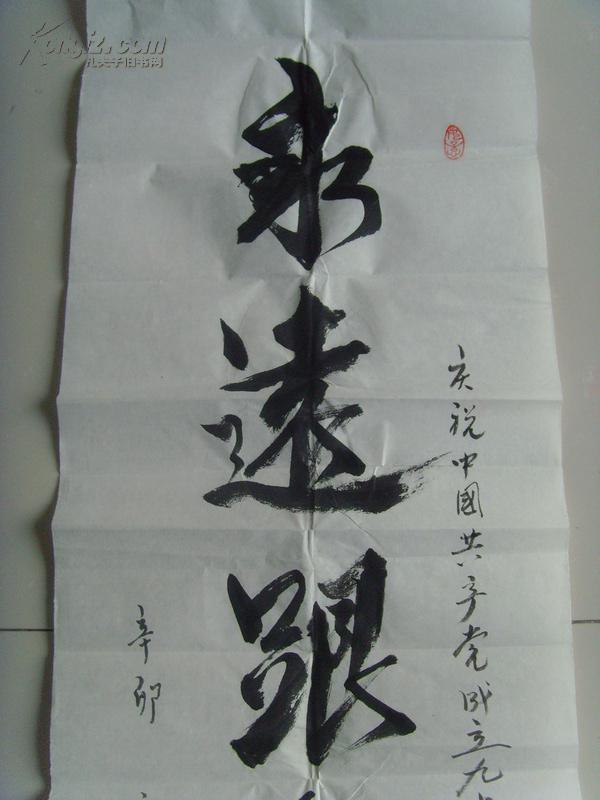 庆祝中國共产党成立九
永遠跟
辛卯
Kongfz.com
孔夫子旧书网